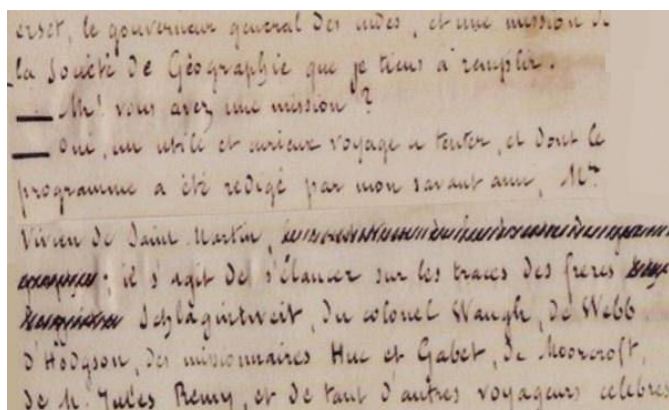 erset, le gouverneur général des indes, et une mission de
la Société de Géographie que je tiens à remplir.
— Ah! vous avez une mission ?
— Oui, un utile et curieux voyage à tenter, et dont le
programme a été rédigé par mon savant ami, Mr
Vivien de Saint Martin,
; il s'agit de s'élancer sur les traces des frères
Schlagintweit, du colonel Waugh, de Webb
d'Hodgson, des missionnaires Huc et Gabet, de Moorcroft,
de M. Jules Remy, et de tant d'autres voyageurs célèbres